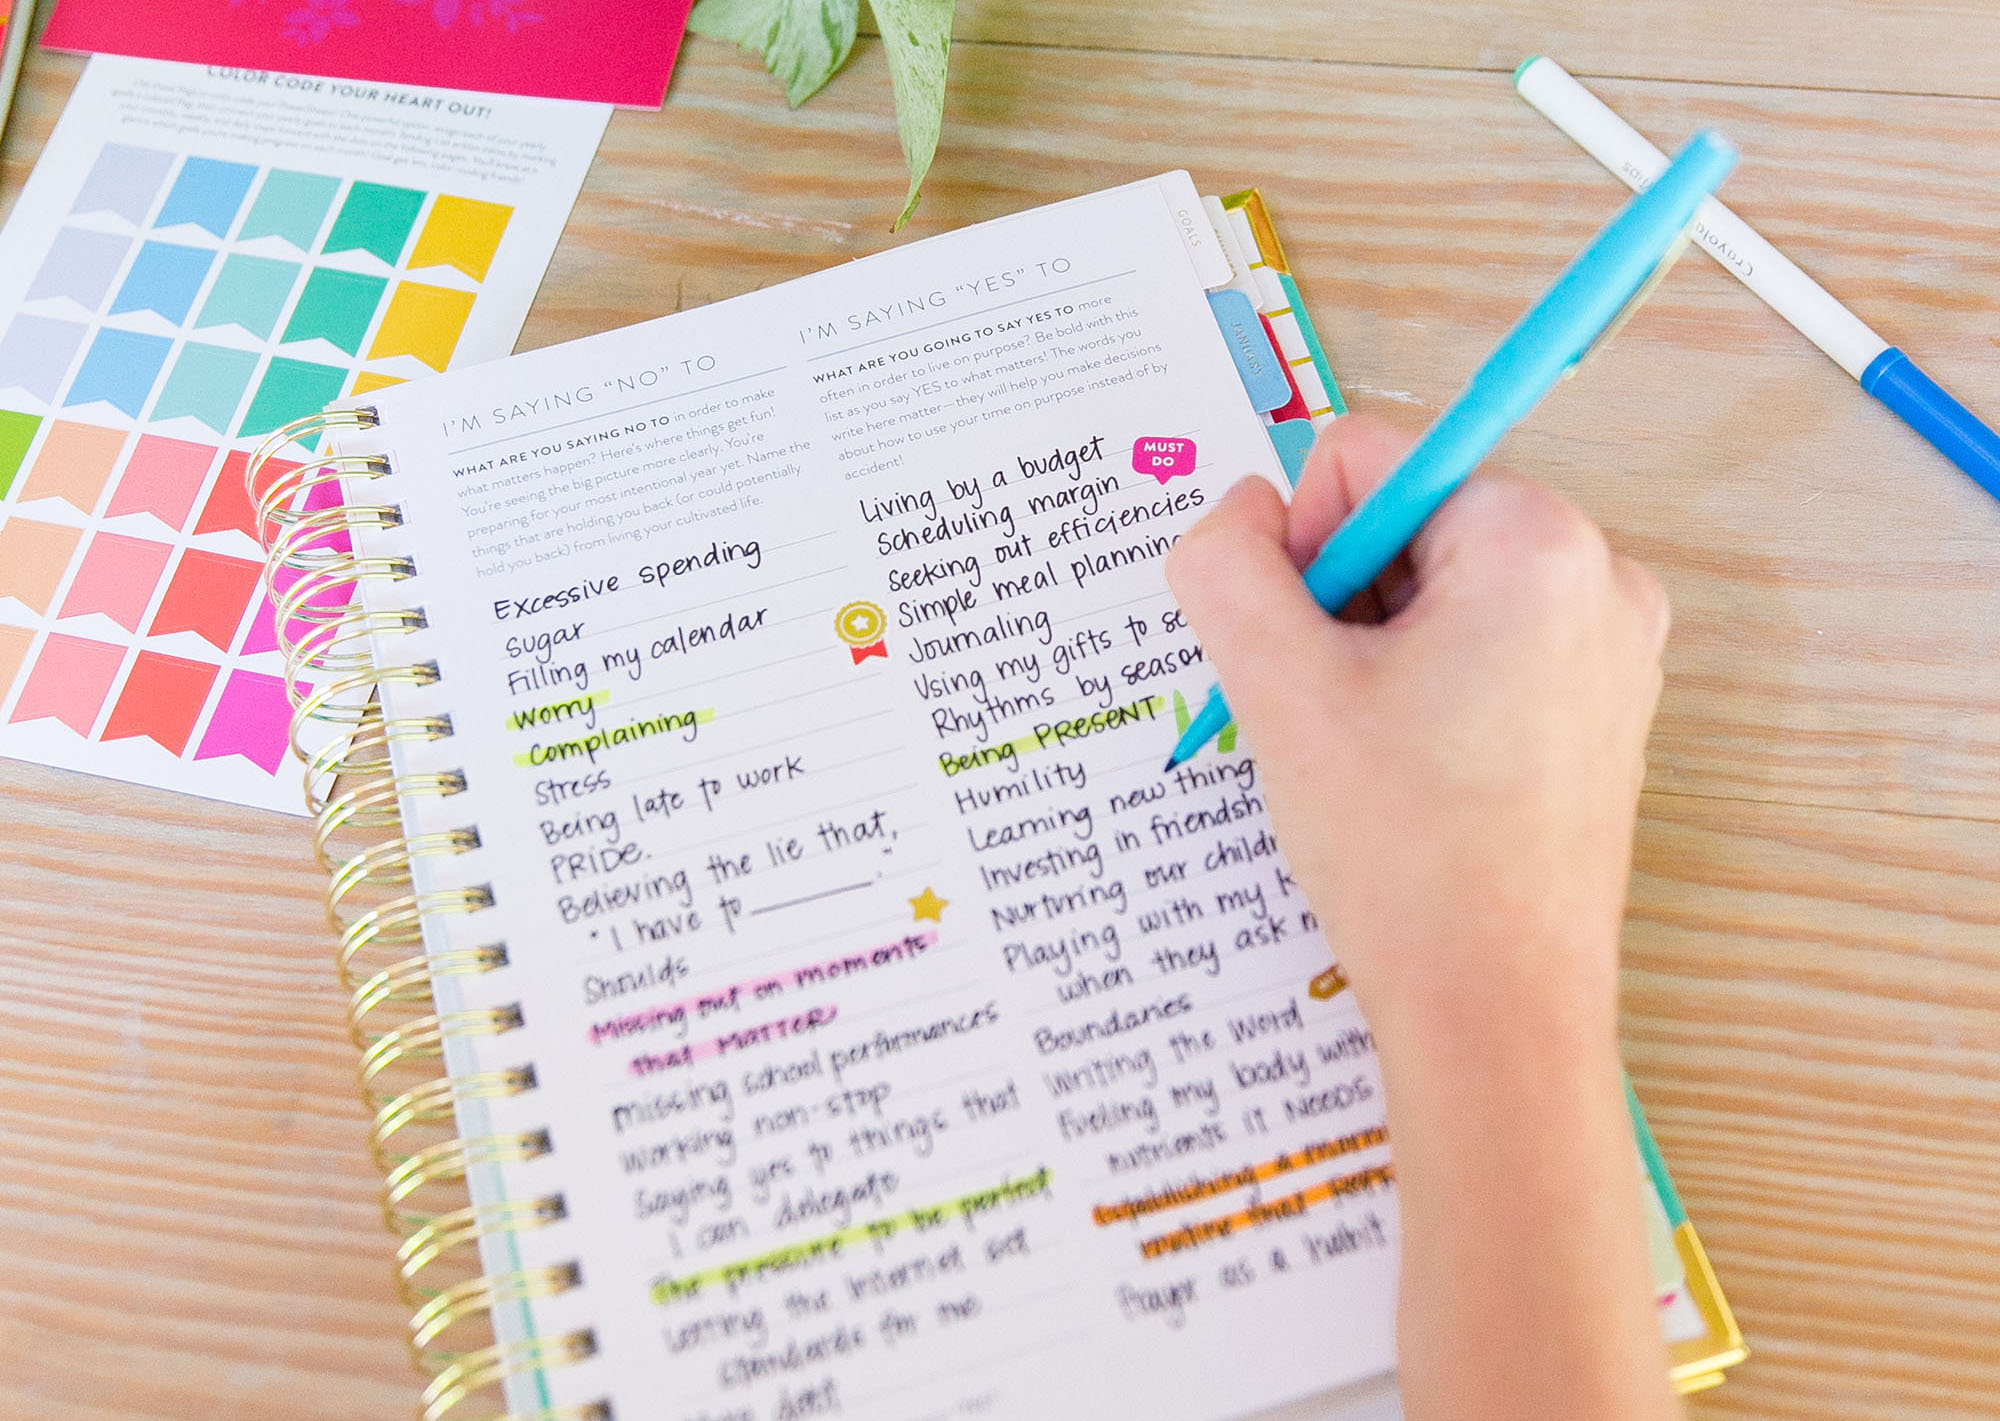 COLOR CODE YOUR HEART OUT!
GOALS
JANUARY
Crayola
I'M SAYING "NO" TO
WHAT ARE YOU SAYING NO TO in order to make
what matters happen? Here's where things get fun!
You're seeing the big picture more clearly. You're
preparing for your most intentional year yet. Name the
things that are holding you back (or could potentially
hold you back) from living your cultivated life.
Excessive spending
Sugar
Filling my calendar
Worry
Complaining
Stress
Being late to work
PRIDE.
Believing the lie that,
"I have to ______."
Shoulds
Missing out on moments
that MATTER
Missing school performances
Working non-stop
Saying yes to things that
I can delegate
The pressure to be perfect
Letting the internet set
standards for me
I'M SAYING "YES" TO
WHAT ARE YOU GOING TO SAY YES TO more
often in order to live on purpose? Be bold with this
list as you say YES to what matters! The words you
write here matter—they will help you make decisions
about how to use your time on purpose instead of by
accident!
MUST
DO
Living by a budget
Scheduling margin
Seeking out efficiencies
Simple meal planning
Journaling
Using my gifts to
Rhythms by season
Being PRESENT
Humility
Learning new thing
Investing in friendsh
Nurturing our childr
Playing with my
when they ask
Boundaries
Writing the Word
Fueling my body with
nutrients it NEEDS
Establishing a
routine that
Prayer as a habit